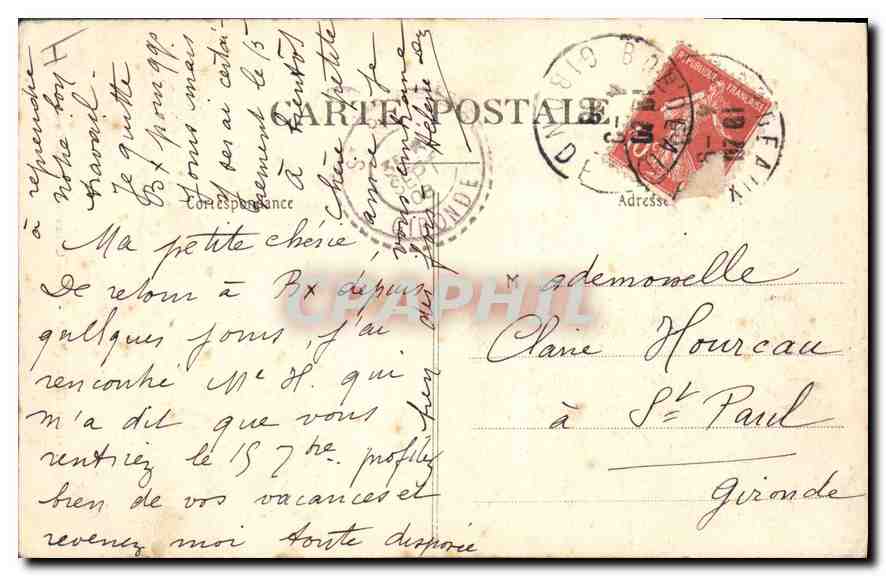 CARTE POSTALE
Correspondance
Adresse
Ma petite chérie
De retour à Bx depuis
quelques jours, j'ai
rencontré Me H. qui
m'a dit que vous
rentriez le 15 7bre. profitez
bien de vos vacances et
revenez moi toute disposée
à reprendre
notre bon
travail.
Je quitte
Bx pour qq.
jours mais
y serai certai-
nement le 15
à bientôt
chère petite
amie je
vous embrasse
bien des fois
Hélène
Mademoiselle
Claire Hourcau
à St Paul
Gironde
BORDEAUX
GIRONDE
REPUBLIQUE FRANCAISE
10
GIRONDE
CPAPHIL